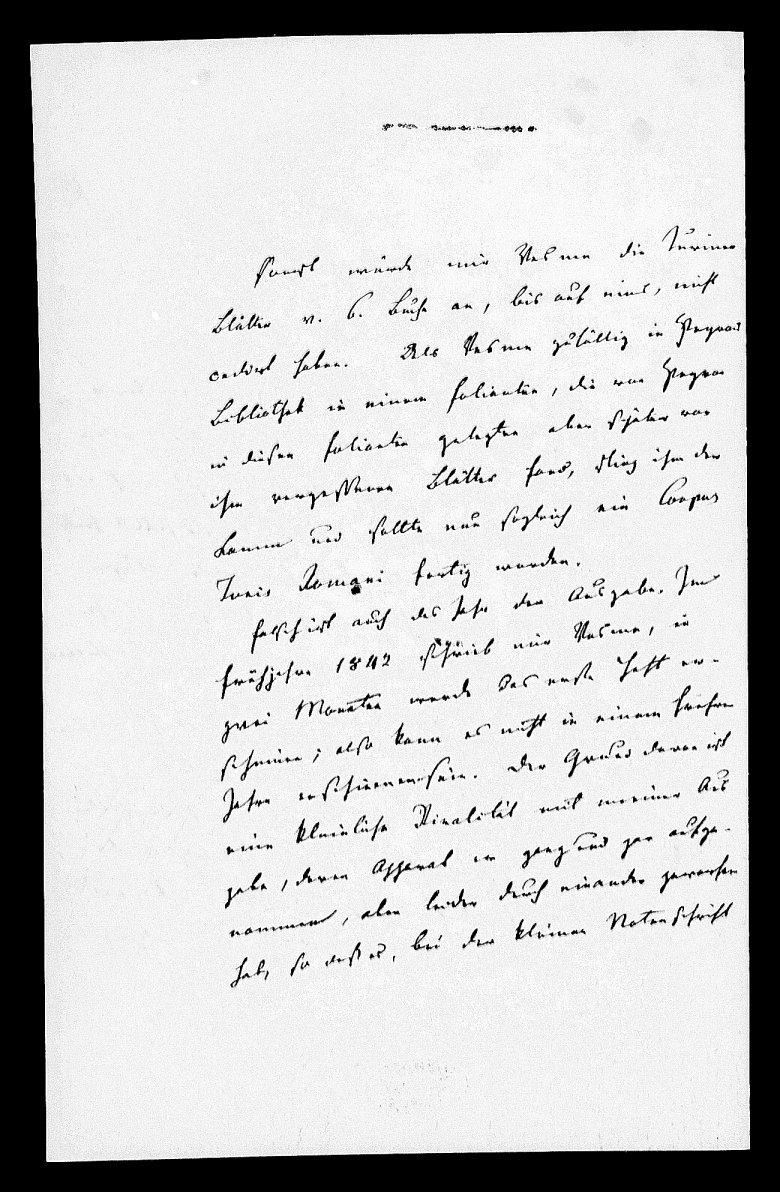 Sonst würde mir Vesme die Turiner
Blätter v. 6. Buche an, bis auf eins, nicht
ediert haben. Als Vesme zufällig in Peyrons
Bibliothek in einem Folianten, die von Peyron
in diesen Folianten gelegten aber später von
ihm vergessenen Blätter fand, stieg ihm der
Kamm und sollte nun sogleich ein Corpus
Iuris Romani fertig werden.
Falsch ist auch das Jahr der Ausgabe. Im
Frühjahre 1842 schrieb mir Vesme, in
zwei Monaten werde das erste Heft er-
scheinen; also kann es nicht in einem frühern
Jahre erschienen sein. Der Grund davon ist
eine kleinliche Rivalität mit meiner Aus
gabe, deren Apparat er ganz und gar aufge-
nommen, aber leider durch einander geworfen
hat, so daß es, bei der kleinen Notenschrift